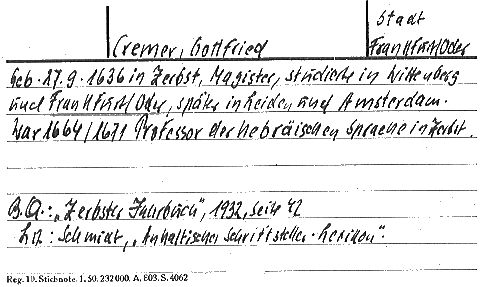 Stadt
Cremer, Gottfried Frankfurt/Oder
Geb. 27.9.1636 in Zerbst, Magister, studierte in Wittenberg
und Frankfurt/Oder, später in Leiden und Amsterdam.
War 1664/1671 Professor der hebräischen Sprache in Zerbst.
B.Q.: „Zerbster Jahrbuch", 1932, Seite 42
Lit: Schmidt, „Anhaltischer Schriftsteller-Lexikon".
Reg. 10. Stichnote. 1. 50. 232000. A. 803. S. 4062